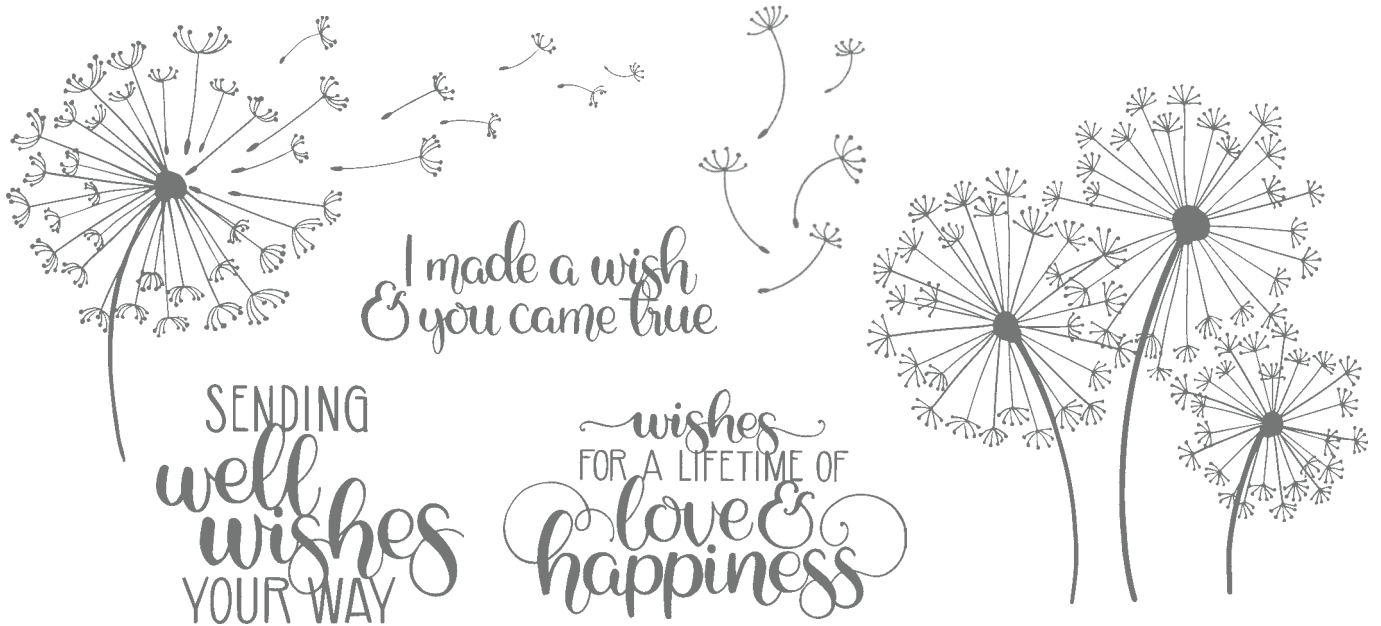 I made a wish
& you came true
SENDING
well
wishes
YOUR WAY
wishes
FOR A LIFETIME OF
love &
happiness